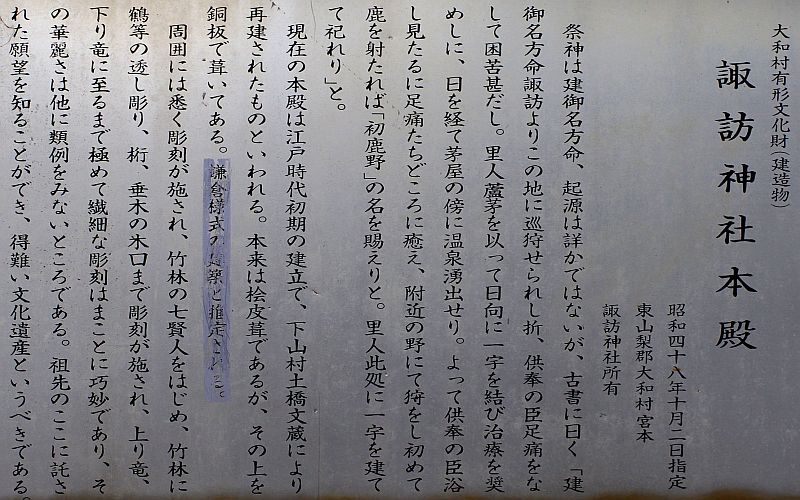 大和村有形文化財(建造物)
諏訪神社本殿
昭和四十八年十月二日指定
東山梨郡大和村宮本
諏訪神社所有
祭神は建御名方命、起源は詳かではないが、古書に曰く「建
御名方命諏訪よりこの地に巡狩せられし折、供奉の臣足痛をな
して困苦甚だし。里人蘆茅を以って日向に一宇を結び治療を奨
めしに、日を経て茅屋の傍に温泉湧出せり。よって供奉の臣浴
し見たるに足痛たちどころに癒え、附近の野にて狩をし初めて
鹿を射たれば「初鹿野」の名を賜えりと。里人此処に一宇を建て
て祀れり」と。
現在の本殿は江戸時代初期の建立で、下山村土橋文蔵により
再建されたものといわれる。本来は桧皮葺であるが、その上を
銅板で葺いてある。鎌倉様式の建築と推定される。
周囲には悉く彫刻が施され、竹林の七賢人をはじめ、竹林に
鶴等の透し彫り、桁、垂木の木口まで彫刻が施され、上り竜、
下り竜に至るまで極めて繊細な彫刻はまことに巧妙であり、そ
の華麗さは他に類例をみないところである。祖先のここに託さ
れた願望を知ることができ、得難い文化遺産というべきである。